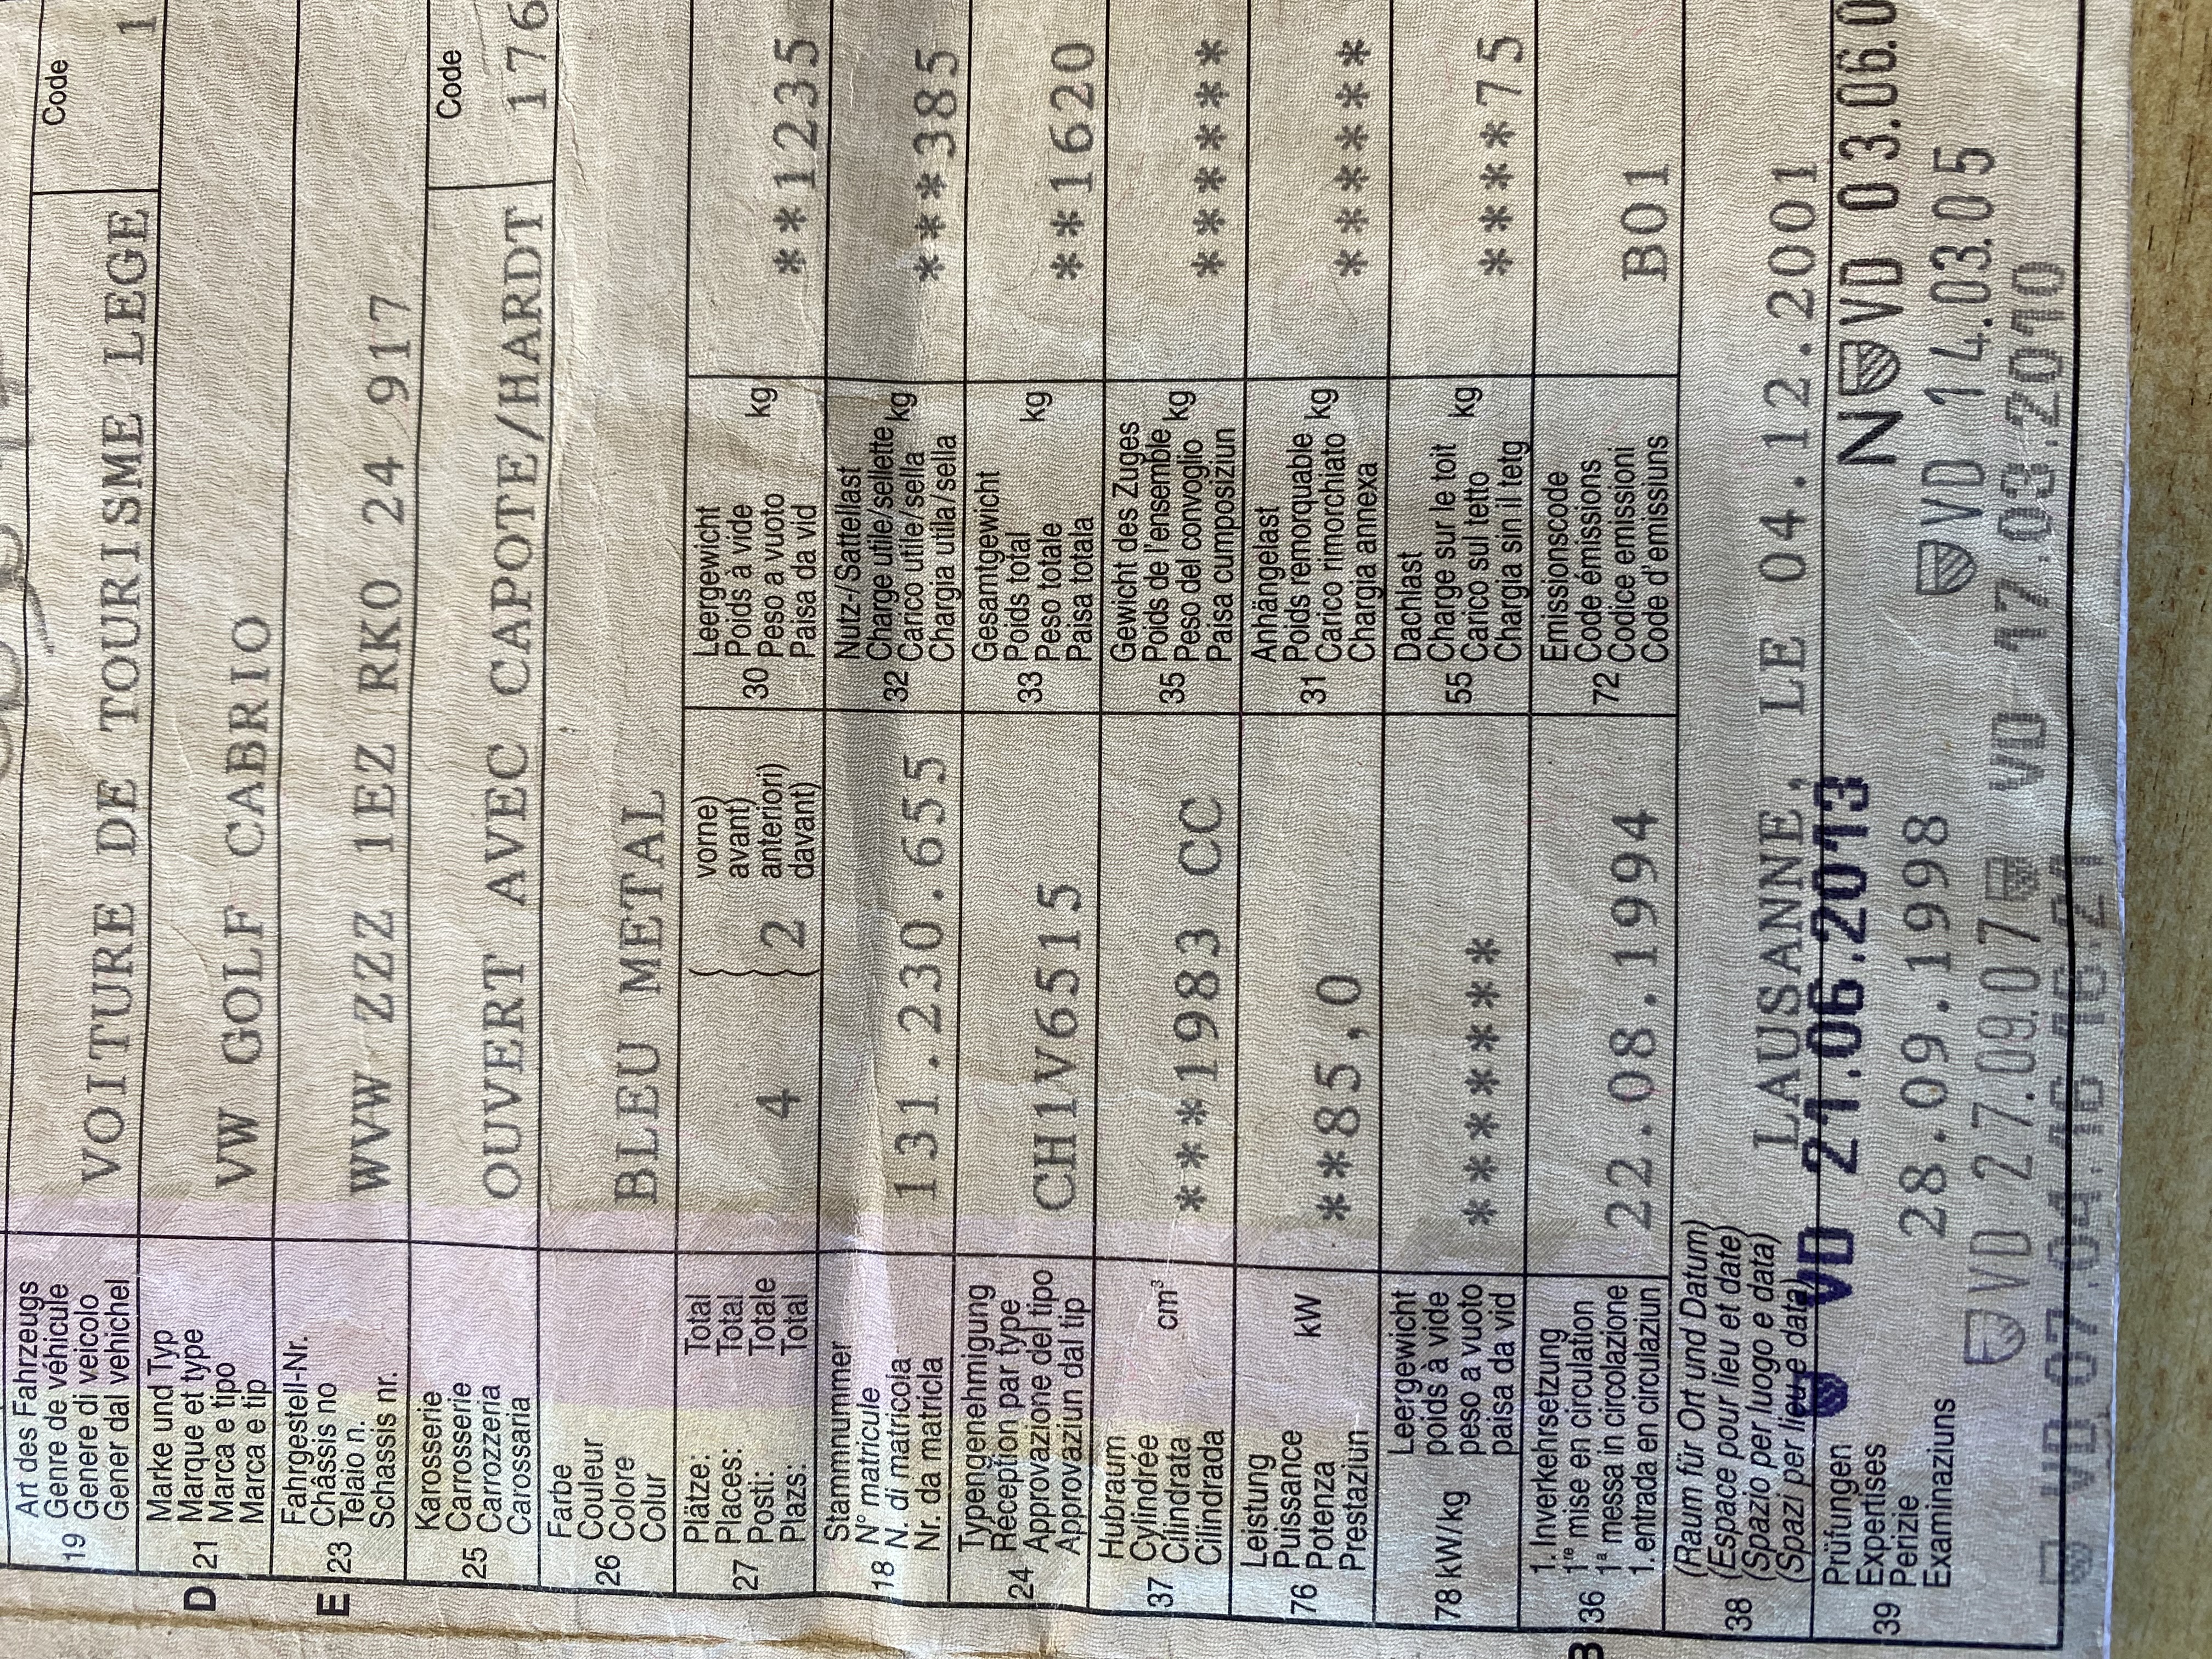 Art des Fahrzeugs
Genre de véhicule
19 Genere di veicolo
Gener dal vehichel
VOITURE DE TOURISME LEGE
Code
1
Marke und Typ
D 21 Marque et type
Marca e tipo
Marca e tip
VW GOLF CABRIO
Fahrgestell-Nr.
E 23 Châssis no
Telaio n.
Schassis nr.
WVW ZZZ 1EZ RK0 24 917
Karosserie
Carrosserie
25 Carrozzeria
Carossaria
OUVERT AVEC CAPOTE/HARDT
Code
176
Farbe
Couleur
26 Colore
Colur
BLEU METAL
Plätze: Total
Places: Total
27 Posti: Totale
Plazs: Total
4
vorne)
avant)
anteriori)
davant)
2
Leergewicht
Poids à vide
30 Peso a vuoto kg
Paisa da vid
**1235
Stammnummer
18 N° matricule
N. di matricola
Nr. da matricla
131.230.655
Nutz-/Sattellast
Charge utile/sellette
32 Carico utile/sella kg
Chargia utila/sella
***385
Typengenehmigung
24 Réception par type
Approvazione del tipo
Approvaziun dal tip
CH1V6515
Gesamtgewicht
33 Poids total kg
Peso totale
Paisa totala
**1620
Hubraum
Cylindrée
37 Cilindrata cm³
Cilindrada
***1983 CC
Gewicht des Zuges
Poids de l'ensemble
35 Peso del convoglio kg
Paisa cumposiziun
******
Leistung
Puissance
76 Potenza kW
Prestaziun
**85,0
Anhängelast
Poids remorquable
31 Carico rimorchiato kg
Chargia annexa
******
Leergewicht
poids à vide
78 kW/kg peso a vuoto
paisa da vid
*******
Dachlast
Charge sur le toit
55 Carico sul tetto kg
Chargia sin il tetg
****75
1. Inverkehrsetzung
B 36 1re mise en circulation
1a messa in circolazione
1. entrada en circulaziun
22.08.1994
Emissionscode
Code émissions
72 Codice emissioni
Code d'emissiuns
B01
(Raum für Ort und Datum)
(Espace pour lieu et date)
38 (Spazio per luogo e data)
(Spazi per lieu e data)
LAUSANNE, LE 04.12.2001
Prüfungen
Expertises
39 Perizie
Examinaziuns
VD 21.06.2013
N VD 03.06.0
28.09.1998
VD 14.03.05
VD 27.09.07
VD 17.03.2010